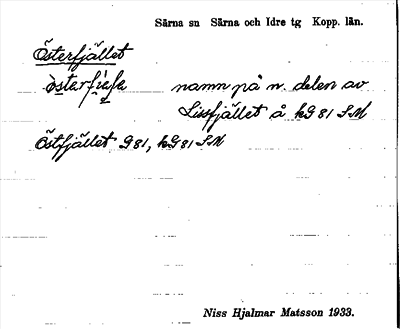 Särna sn Särna och Idre tg Kopp. län.
Österfjället
namn på n. delen av
Lissfjället å kG 81 SM
Östfjället G 81, kG 81 SM
Niss Hjalmar Matsson 1933.